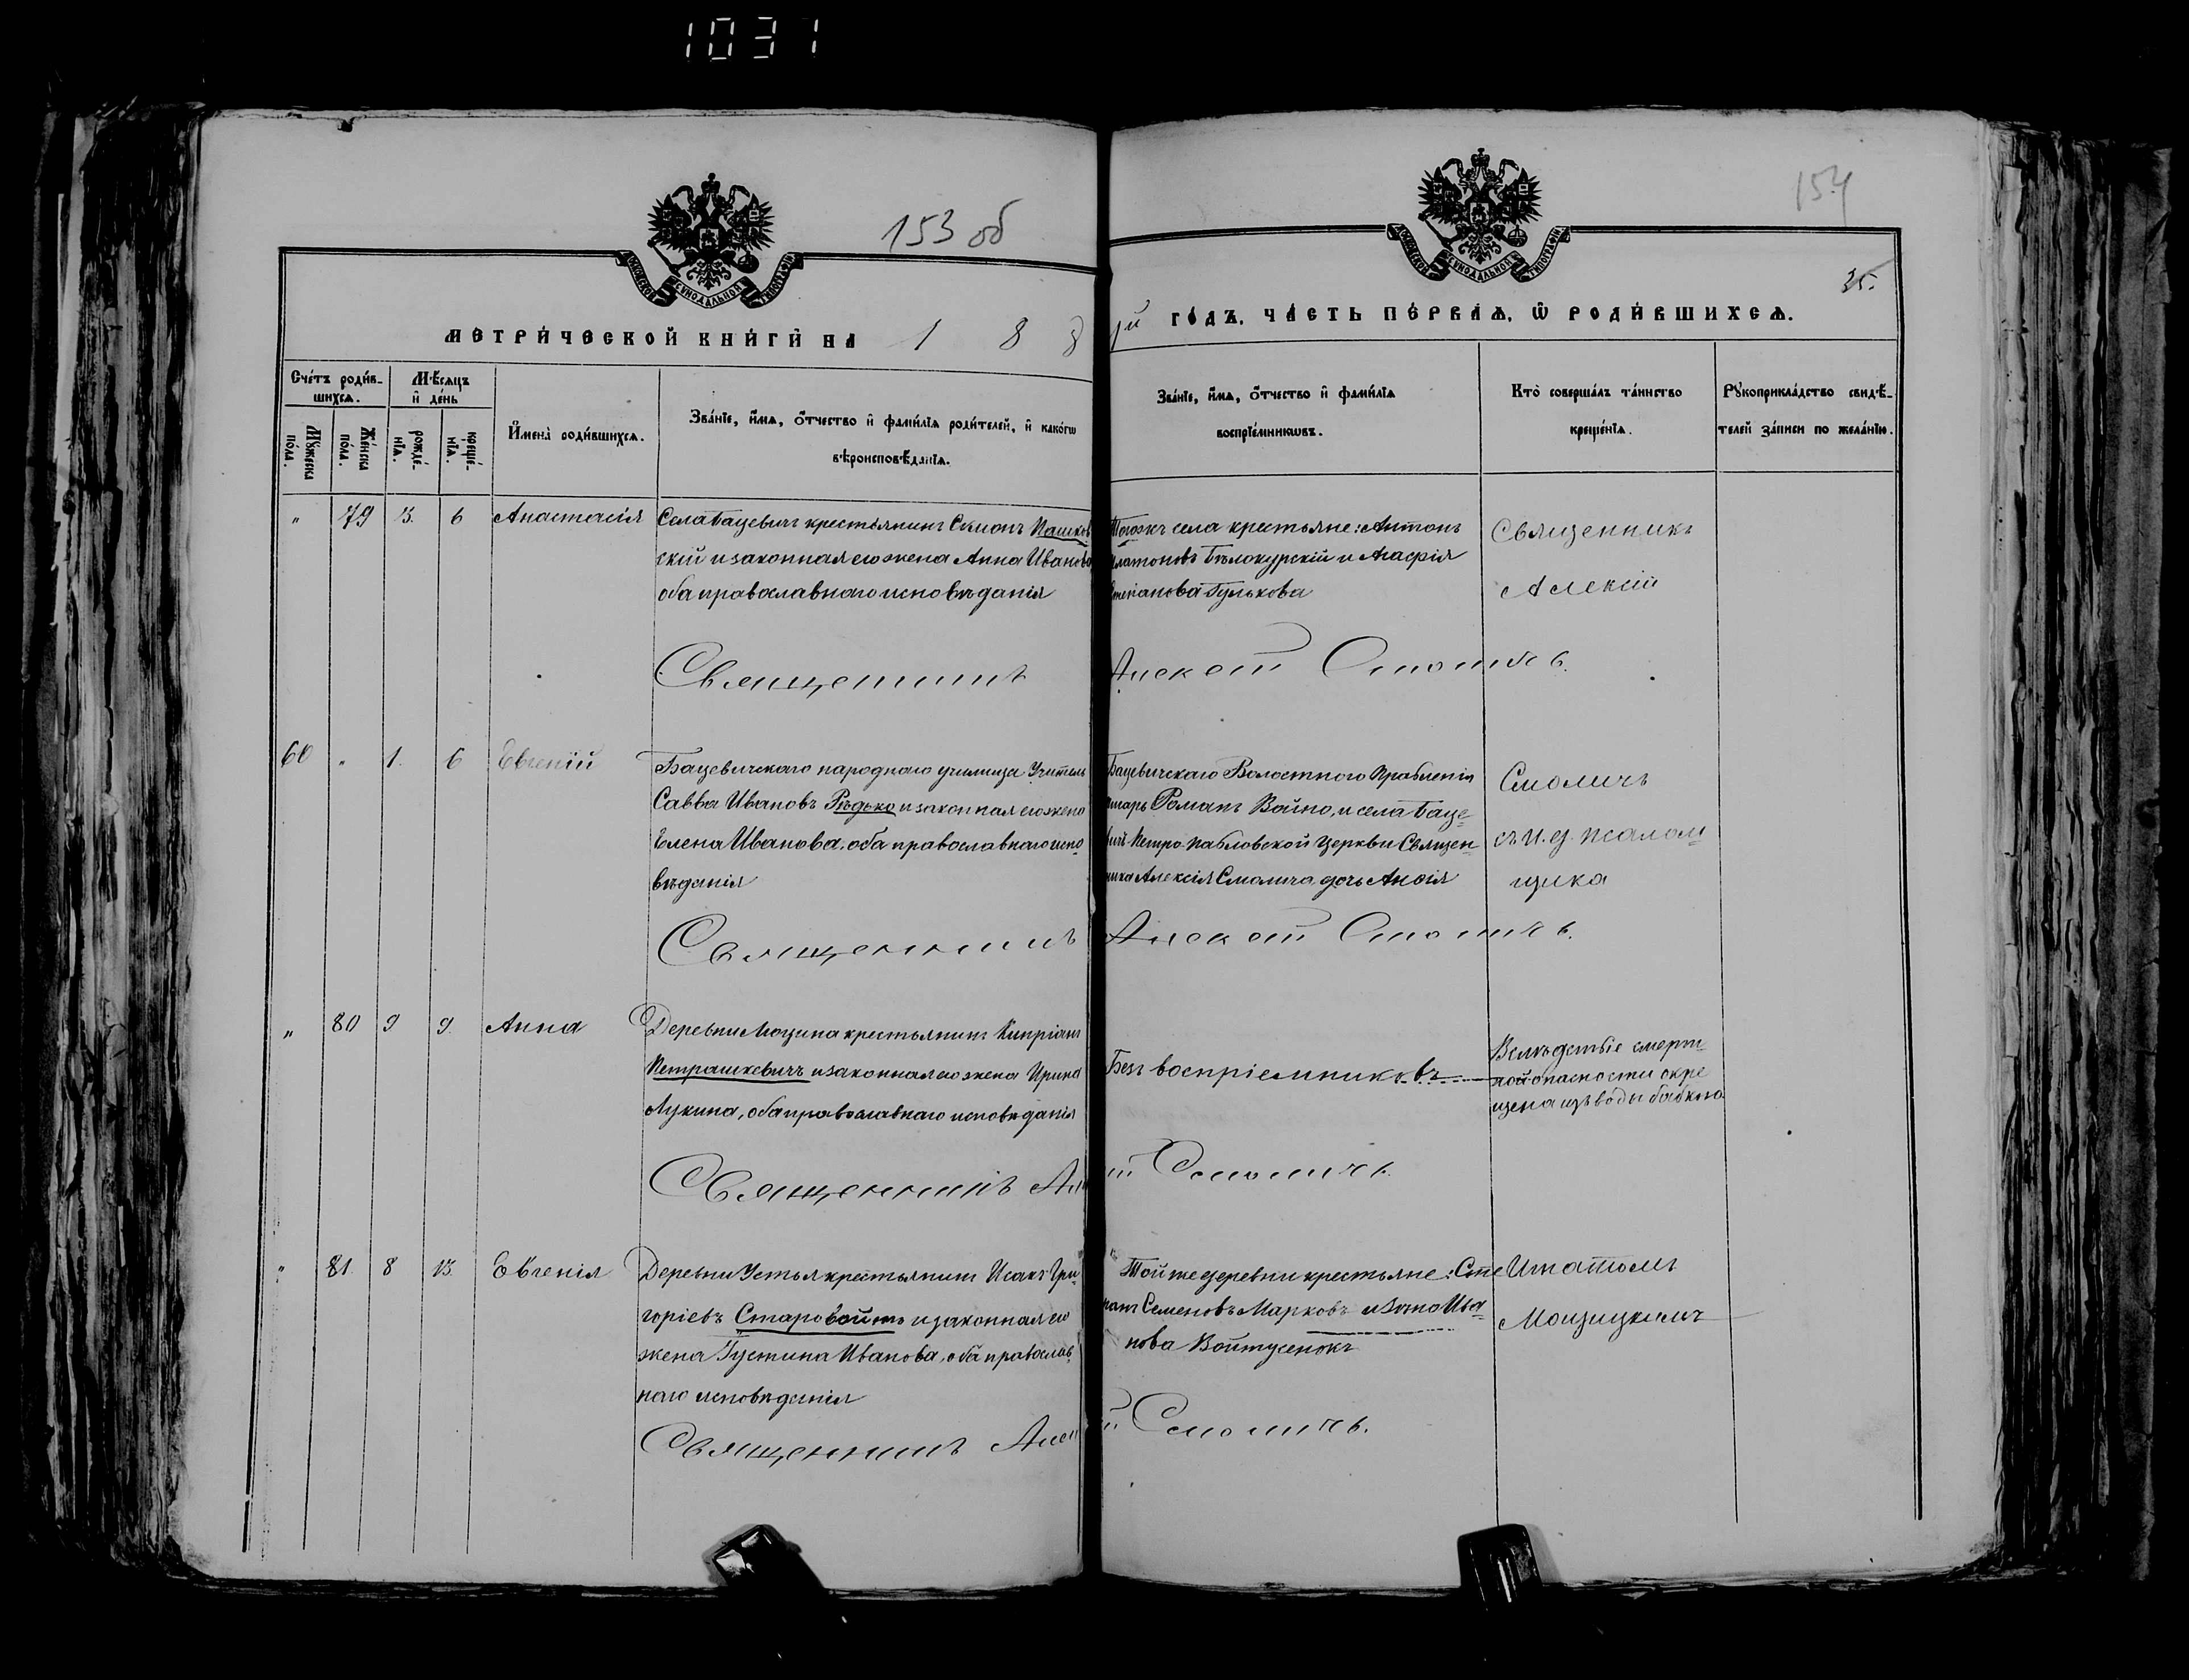 1031
153 об
154
35.
МОСКОВСКОЙ СѴНОДАЛЬНОЙ ТИПОГРАФІИ
МОСКОВСКОЙ СѴНОДАЛЬНОЙ ТИПОГРАФІИ
МЕТРИ́ЧЕСКОЙ КНИ́ГИ НА 1 8 8
й ГО́ДЪ, ЧА́СТЬ ПЕ́РВАѦ, Ѿ РОДИ́ВШИХСѦ.
Сче́тъ роди́в-
шихсѧ.
Мѣ́сѧцъ
и҆ де́нь
Мꙋ́жеска
по́ла.
Же́нска
по́ла.
рожде́-
нїѧ.
креще́-
нїѧ.
И҆мена̀ роди́вшихсѧ.
Зва́нїе, и҆́мѧ, ѻ҆́тчество и҆ фамі́лїѧ роди́телей, и҆ како́гѡ
вѣроисповѣ́данїѧ.
Зва́нїе, и҆́мѧ, ѻ҆́тчество и҆ фамі́лїѧ
воспрїе́мникѡвъ.
Кто̀ соверша́лъ та́инство
креще́нїѧ.
Рꙋкоприкла́дство свидѣ́-
телей за́писи по жела́нїю.
" 79 3. 6 Анастасія
Села Бацевичъ крестьянинъ Симонъ Пашков
скій и законная его жена Анна Иванова
оба православнаго исповѣданія
Тогожъ села крестьяне: Антонъ
Платоновъ Бѣлокурскій и Агафія
Степанова Гулькова
Священникъ
Алексій
Священникъ Алексій Смоличъ.
60 " 1. 6 Евгеній
Бацевичскаго народнаго училища Учитель
Савва Ивановъ Рѣдько и законная его жена
Елена Иванова, оба православнаго испо-
вѣданія
Бацевичскаго Волостного Правленія
писарь Романъ Война, и села Баце-
вичъ Петро-Павловской Церкви Священ-
ника Алексія Смолича дочь Анфія
Смоличъ
съ И. д. псалом-
щика
Священникъ Алексій Смоличъ.
" 80 9 9. Анна
Деревни Мощина крестьянинъ Кипріанъ
Петрашкевичъ и законная его жена Ирина
Лукина, оба православнаго исповѣданія
Безъ воспріемниковъ
Вслѣдствіе смерт-
ной опасности окре
щена изъ воды бабкою
Священникъ Ал й Смоличъ.
" 81. 8 13. Евгенія
Деревни Устья крестьянинъ Исакъ Гри-
горіевъ Старовойтъ и законная его
жена Густина Иванова, оба православ-
наго исповѣданія
Той же деревни крестьяне: Сте
панъ Семеновъ Марковъ и Ива-
нова Войтусенокъ
Игнатомъ
Мощицкимъ
Священникъ Алексій Смоличъ.